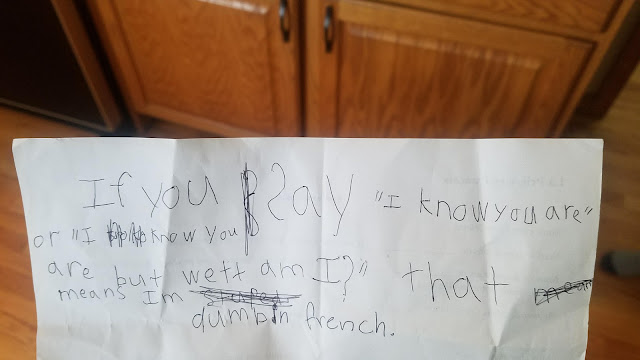 If you Say "I know you are"
or "I know you
are but wett am I?" that
means Im
dumb in french.